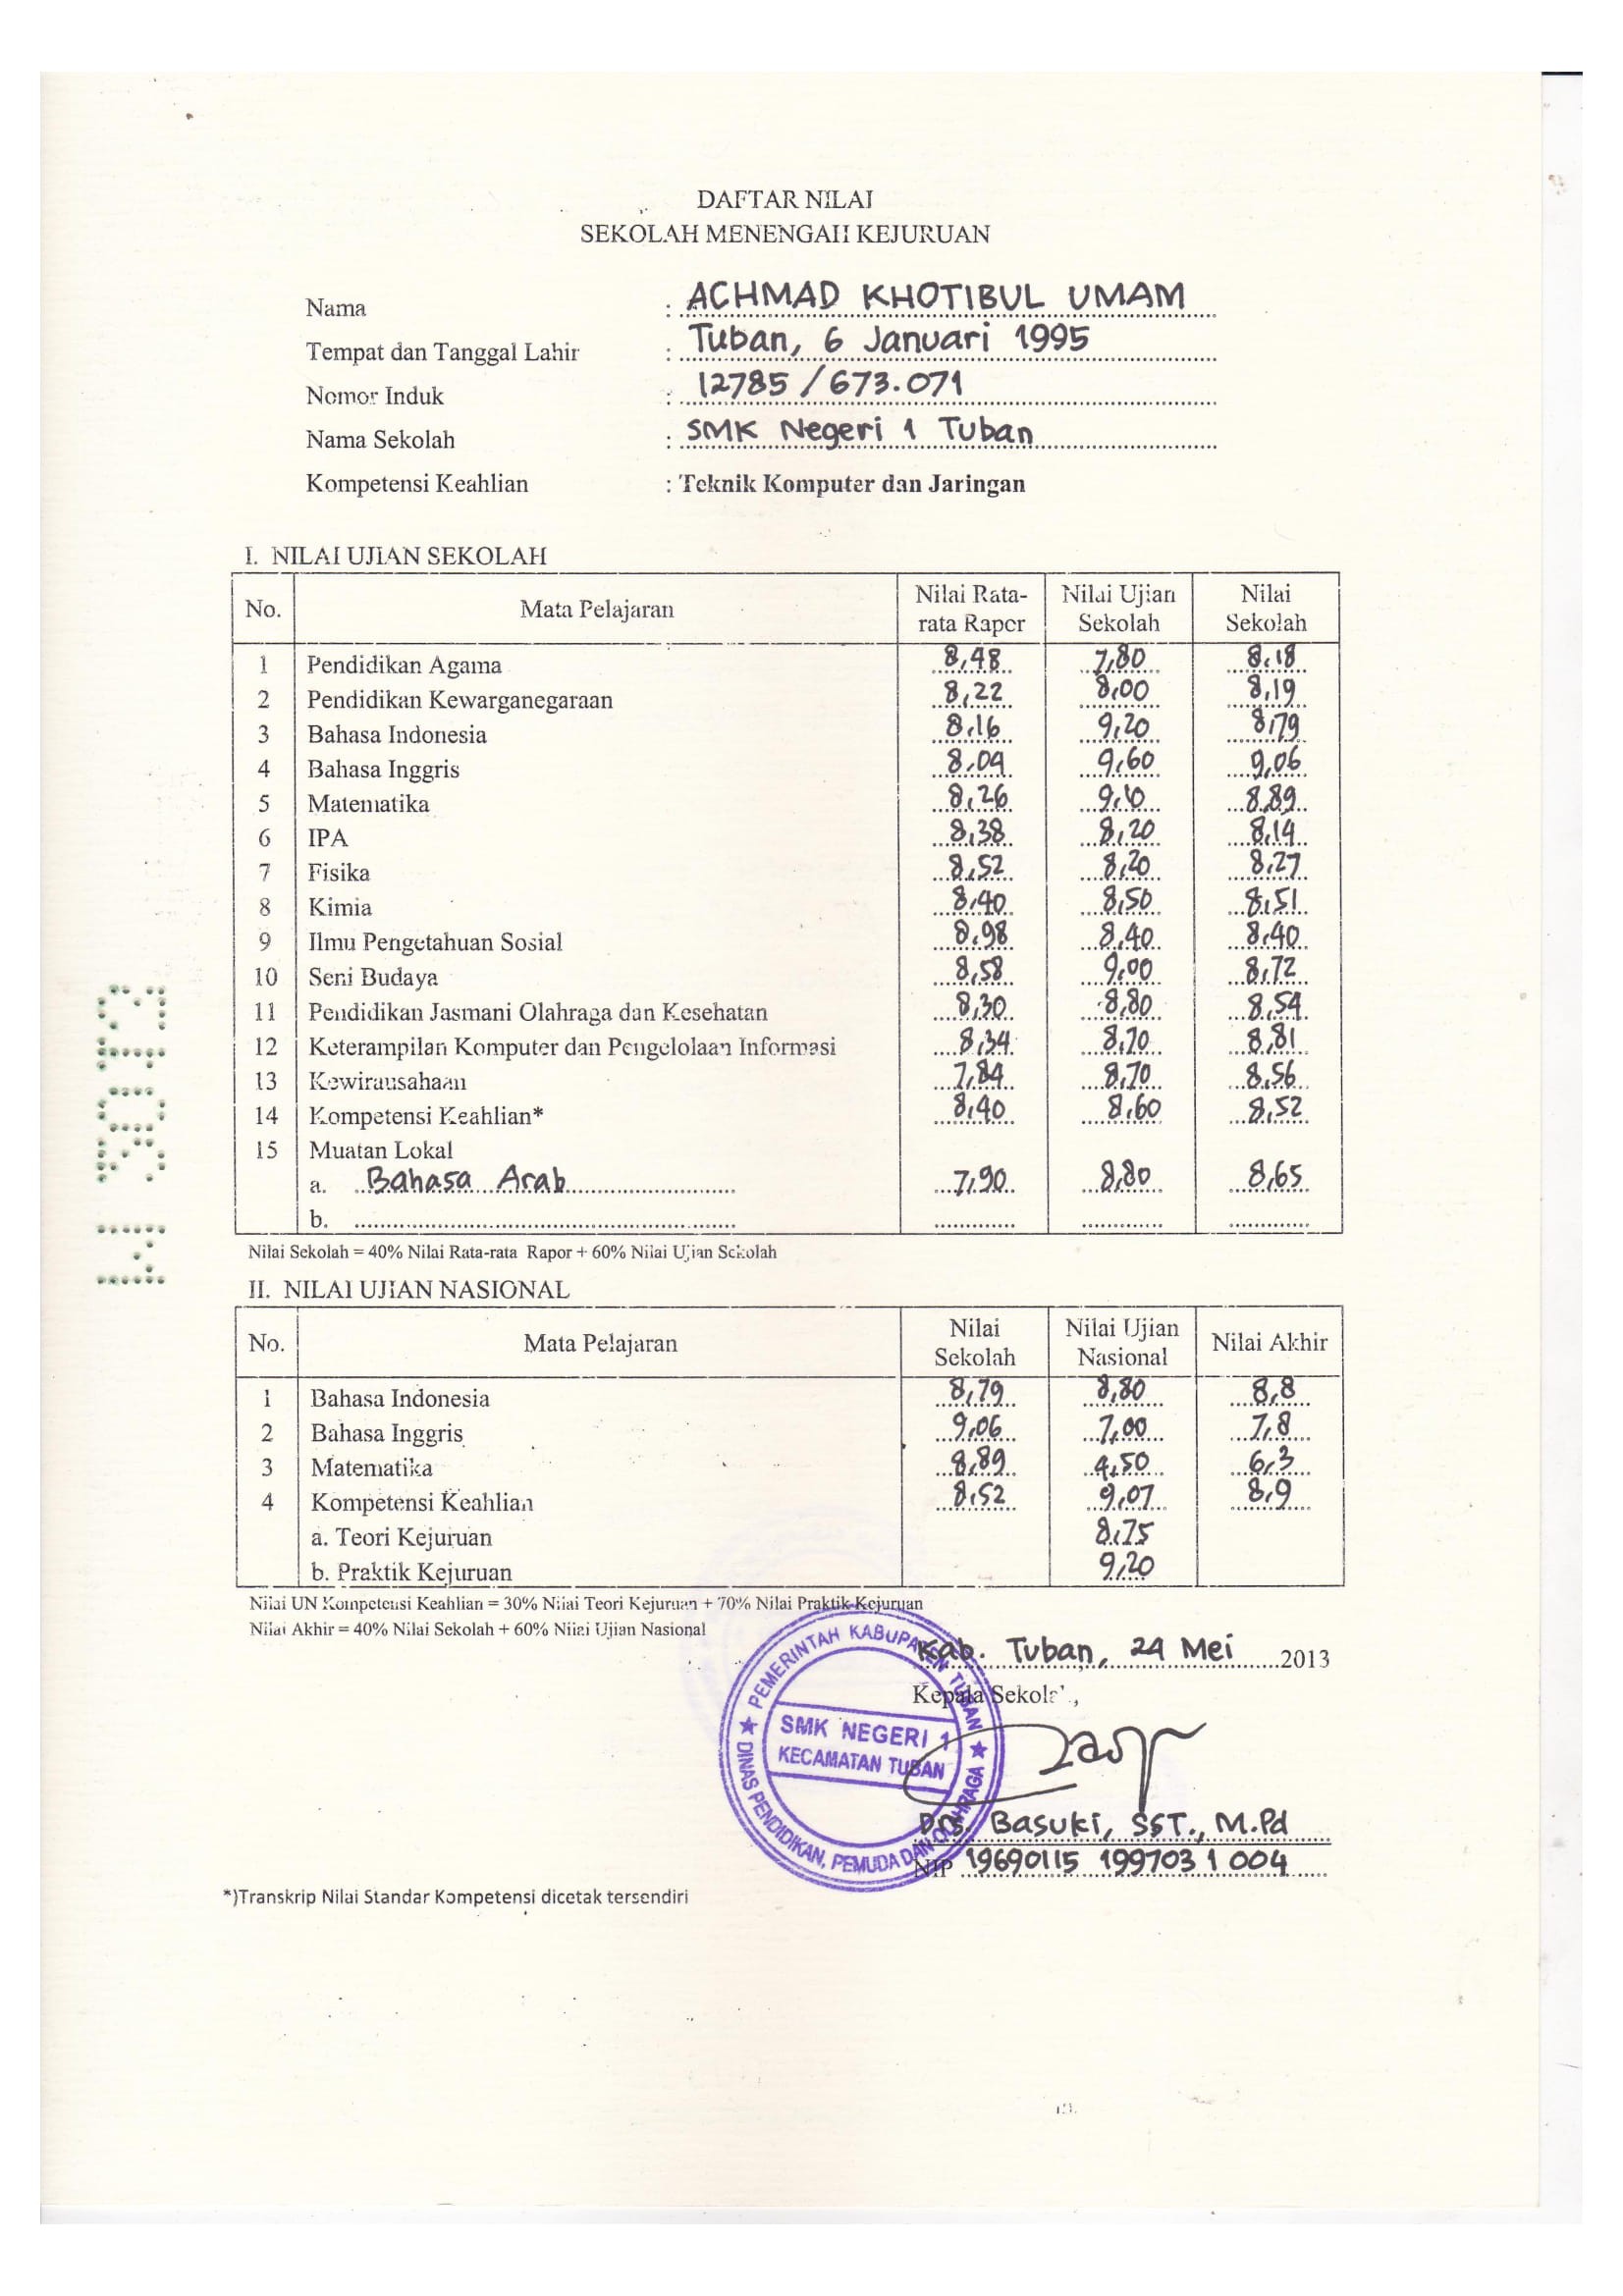 DAFTAR NILAI
SEKOLAH MENENGAH KEJURUAN
Nama : ACHMAD KHOTIBUL UMAM
Tempat dan Tanggal Lahir : Tuban, 6 Januari 1995
Nomor Induk : 12785 / 673.071
Nama Sekolah : SMK Negeri 1 Tuban
Kompetensi Keahlian : Teknik Komputer dan Jaringan
I. NILAI UJIAN SEKOLAH
No. Mata Pelajaran Nilai Rata-rata Rapor Nilai Ujian Sekolah Nilai Sekolah
1 Pendidikan Agama 8,48 7,80 8,18
2 Pendidikan Kewarganegaraan 8,22 8,00 8,19
3 Bahasa Indonesia 8,16 9,20 8,79
4 Bahasa Inggris 8,09 9,60 9,06
5 Matematika 8,26 9,10 8,89
6 IPA 8,38 8,20 8,14
7 Fisika 8,52 8,20 8,27
8 Kimia 8,40 8,50 8,51
9 Ilmu Pengetahuan Sosial 8,98 8,40 8,40
10 Seni Budaya 8,58 9,00 8,72
11 Pendidikan Jasmani Olahraga dan Kesehatan 8,30 8,80 8,54
12 Keterampilan Komputer dan Pengelolaan Informasi 8,34 8,70 8,81
13 Kewirausahaan 7,84 8,70 8,56
14 Kompetensi Keahlian* 8,40 8,60 8,52
15 Muatan Lokal
a. Bahasa Arab 7,90 8,80 8,65
b.
Nilai Sekolah = 40% Nilai Rata-rata Rapor + 60% Nilai Ujian Sekolah
II. NILAI UJIAN NASIONAL
No. Mata Pelajaran Nilai Sekolah Nilai Ujian Nasional Nilai Akhir
1 Bahasa Indonesia 8,79 8,80 8,8
2 Bahasa Inggris 9,06 7,00 7,8
3 Matematika 8,89 4,50 6,3
4 Kompetensi Keahlian 8,52 9,07 8,9
a. Teori Kejuruan 8,75
b. Praktik Kejuruan 9,20
Nilai UN Kompetensi Keahlian = 30% Nilai Teori Kejuruan + 70% Nilai Praktik Kejuruan
Nilai Akhir = 40% Nilai Sekolah + 60% Nilai Ujian Nasional
Kab. Tuban, 24 Mei 2013
Kepala Sekolah,
PEMERINTAH KABUPATEN TUBAN
SMK NEGERI 1
KECAMATAN TUBAN
DINAS PENDIDIKAN, PEMUDA DAN OLAHRAGA
Drs. Basuki, SST., M.Pd
NIP 19690115 199703 1 004
*)Transkrip Nilai Standar Kompetensi dicetak tersendiri